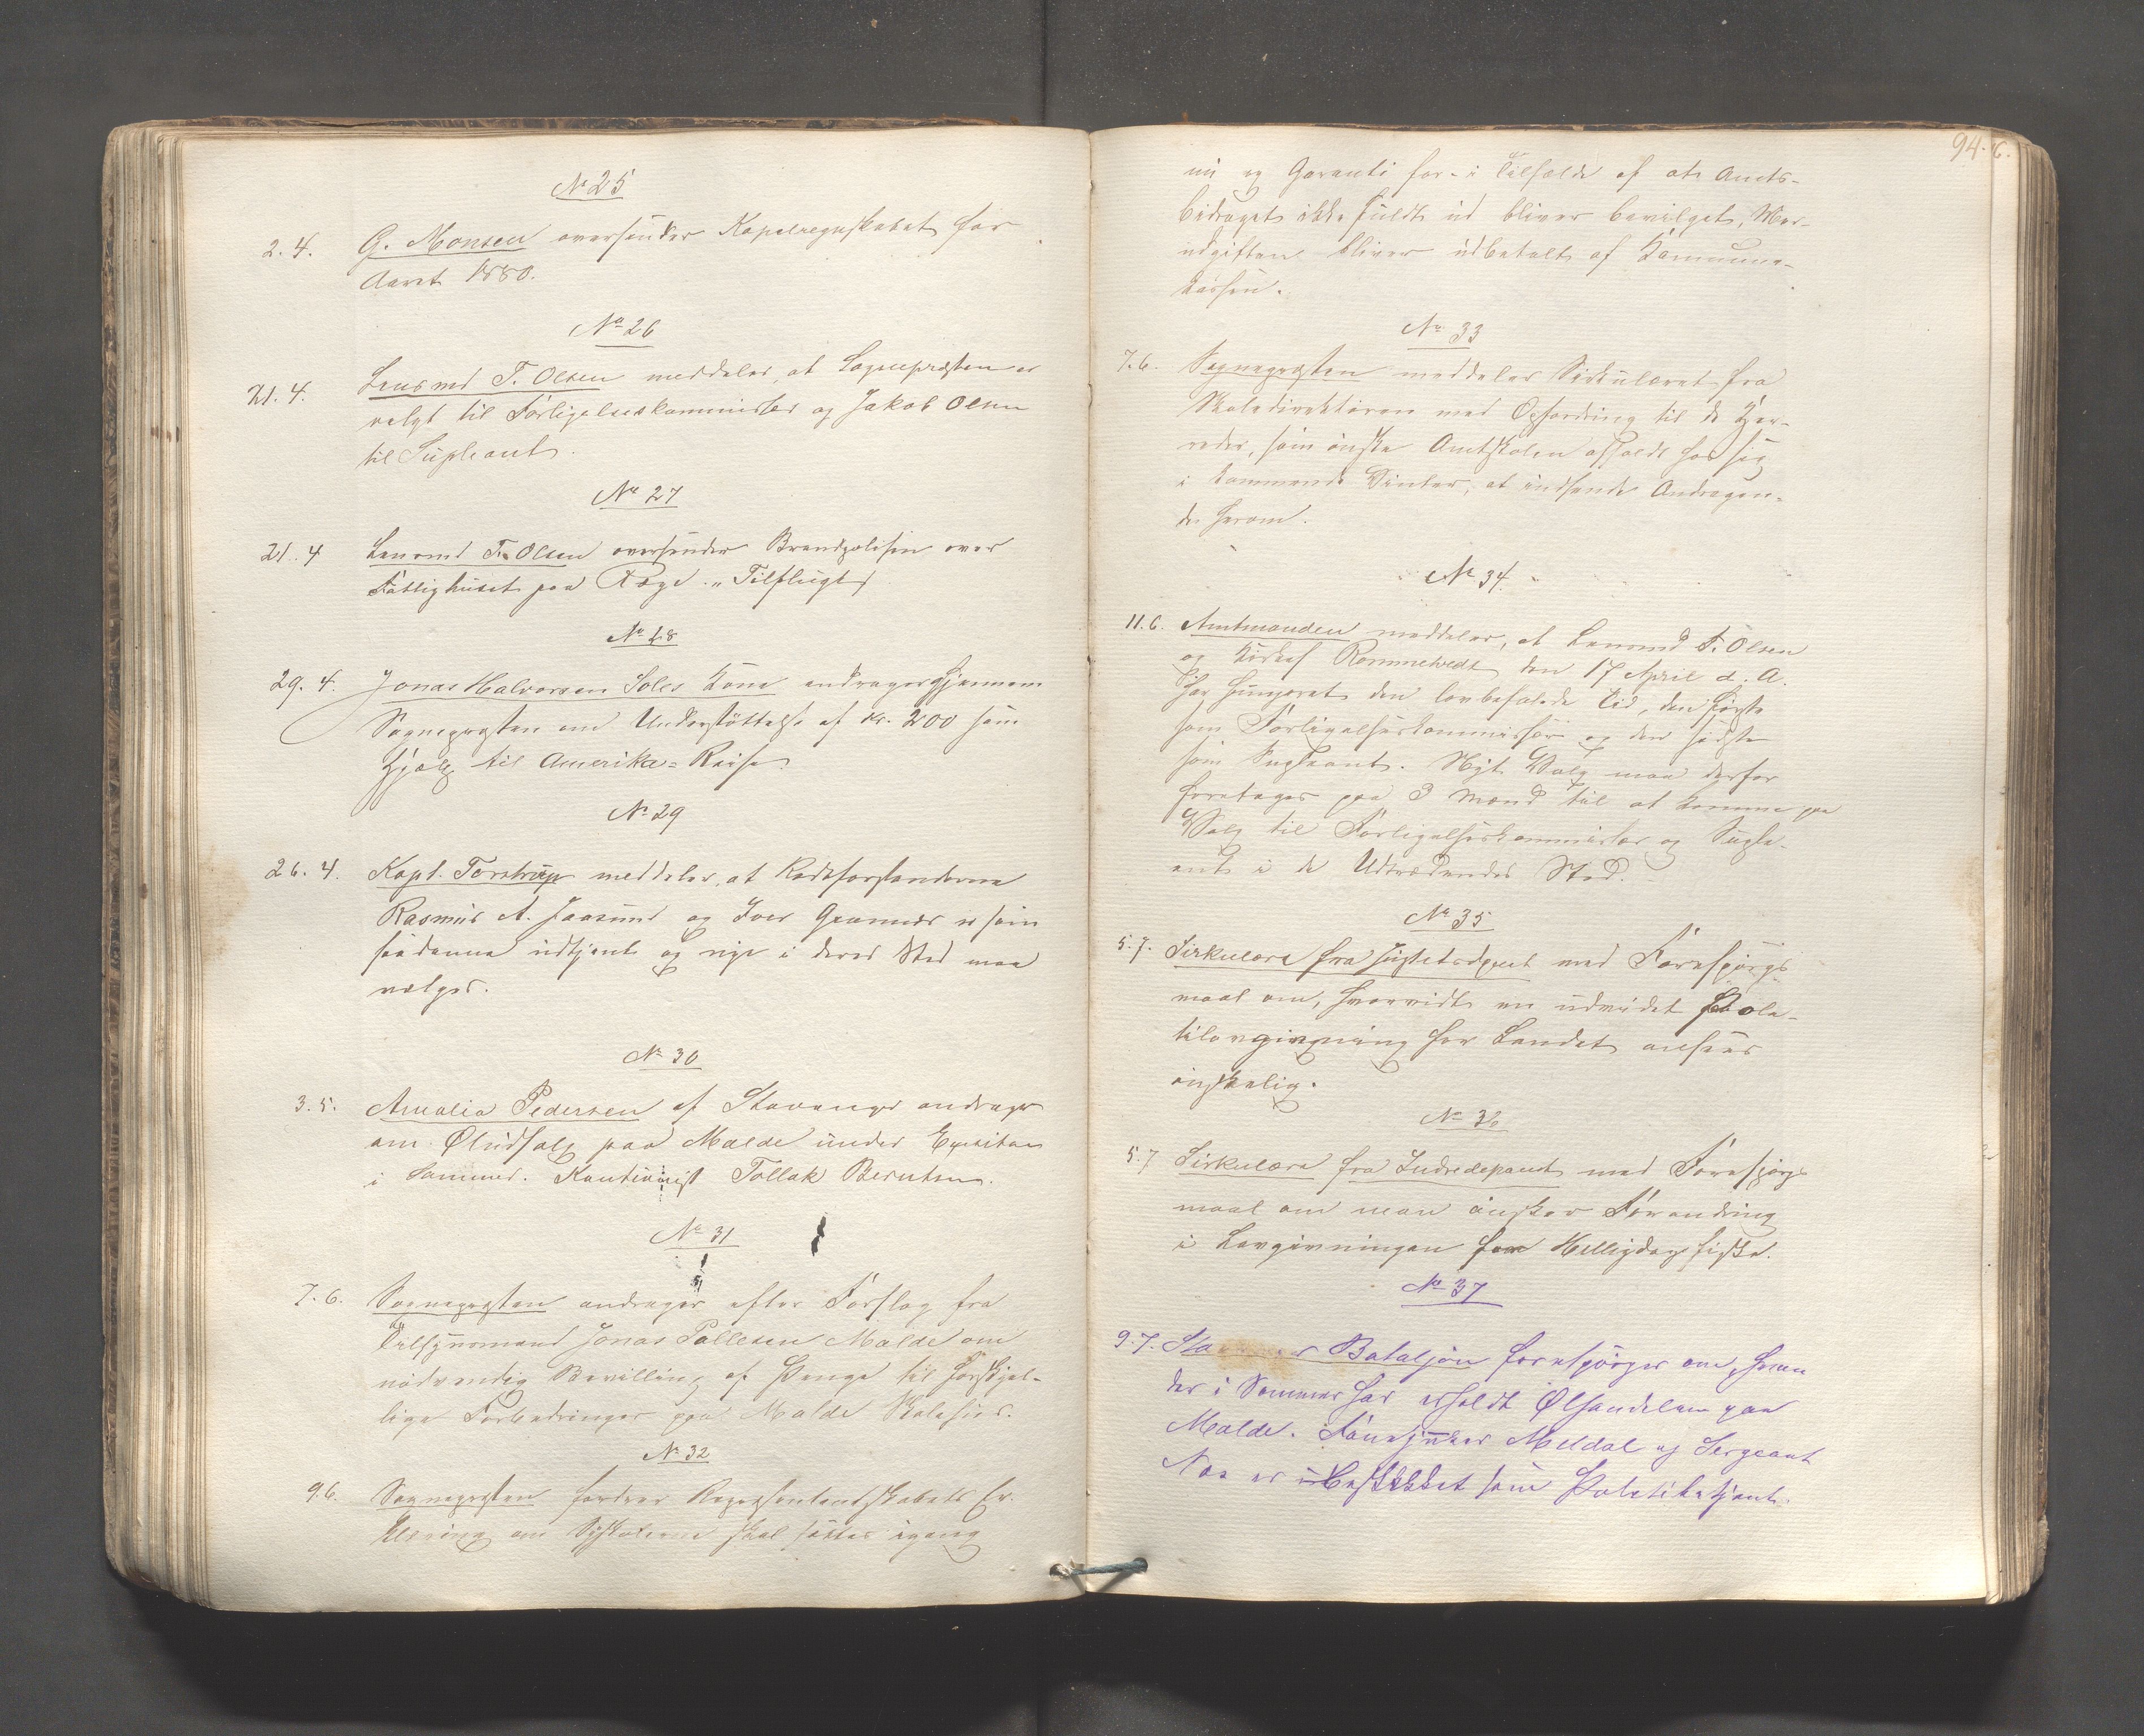 No 25
2. 4. G. Monsen oversender Kapelregnskabet for
Aaret 1880.
No 26
21. 4. Lensmd T. Olsen meddeler, at Sognepresten er
valgt til Forligelseskommissær og Jakob Olsen
til Supleant.
No 27
21. 4 Lensmd T. Olsen oversender Brandpolisen over
Fattighuset paa Ræge "Tilflugt"
No 28
29. 4. Jonas Halvorsen Soles Kone andrager gjennem
Sognepresten om Understøttelse af Kr. 200 som
Hjælp til Amerika-Reise
No 29
26. 4. Kapt. Torstrup meddeler, at Rodeforstanderne
Rasmus A. Jaasund og Iver Grannes er som
saadanne udtjent og nye i deres Sted maa
vælges.
No 30
3. 5. Amalia Pedersen af Stavanger andrager
om Øludsalg paa Malde under Exersitsen
i Sommer. Kautionist Tollak Berntsen.
No 31
7. 6. Sognepresten andrager efter Forslag fra
Tilsynsmand Jonas Pallesen Malde om
nødvendig Bevilling af Penge til forskjel-
lige Forbedringer paa Malde Skolehus.
No 32
9.6. Sognepresten fordrer Representantskabets Er-
klæring om Syskolerne skal sættes igang
94.
nu og Garanti for i Tilfælde af at Amts-
bidraget ikke fuldt ud bliver bevilget, Mer-
udgiften bliver udbetalt af Kommune-
kassen.
No 33
7.6. Sognepresten meddeler Sirkulæret fra
Skoledirektøren med Opfordring til de Her-
reder, som ønske Amtskolen afholdt hos sig
i kommende Vinter, at indsende Andragen-
de herom.
No 34.
11.6. Amtmanden meddeler, at Lensmd T. Olsen
og Kirkes. Rommetvedt den 17 April d. A.
har fungeret den lovbefalede Tid, den første
som Forligelseskommissær og den sidste
som Supleant. Nyt Valg maa derfor
foretages paa 3 Mænd til at komme paa
Valg til Forligelseskommissær og Suple-
ant i de Udtrædendes Sted.
No 35
5. 7. Sirkulære fra Justitsdpmt med Forespørgs-
maal om, hvorvidt en udvidet Skole-
tilovgivning for Landet ansees
ønskelig.
No 36
5. 7 Sirkulære fra Indredepamt med Forespørgs
maal om man ønsker Forandring
i Lovgivningen for Helligdagsfiske.
No 37
9. 7. Bataljon forespørger om, hvem
der i Sommer har erholdt Ølhandelen paa
Malde. Fanejunker Meldal og Sergeant
Næs er beskikket som Politibetjent.